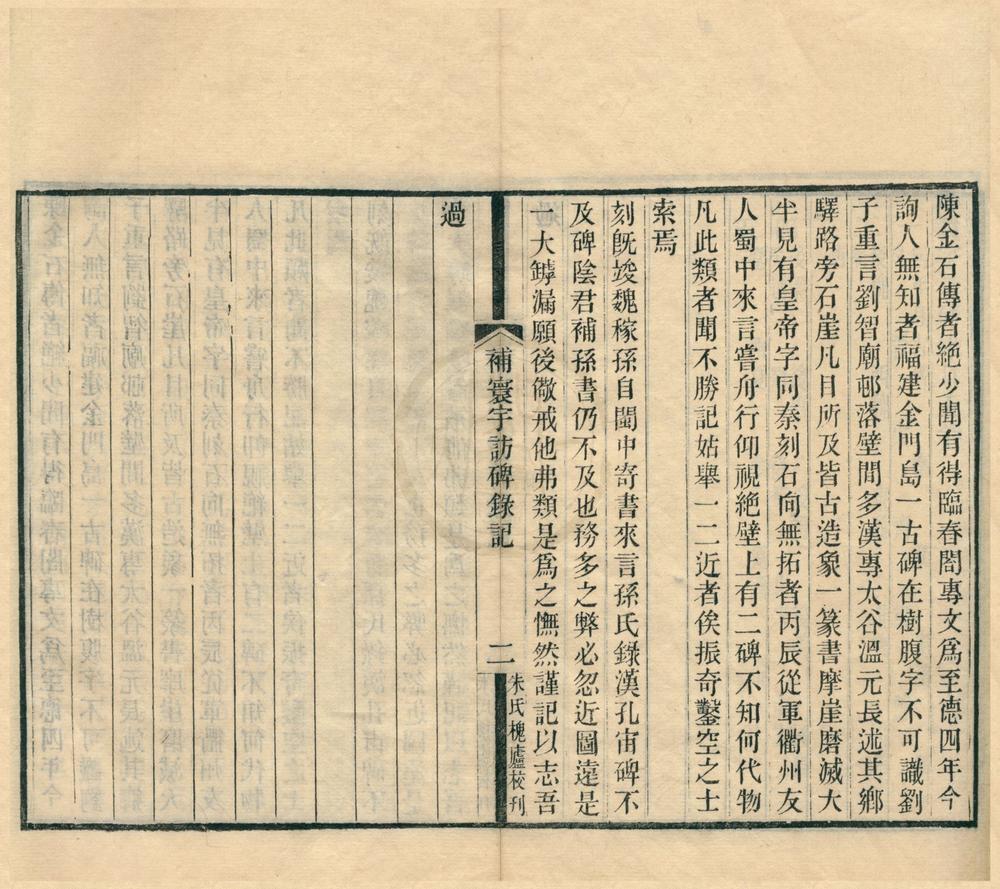 陳金石傳者絶少聞有得臨春閣專文爲至德四年今
詢人無知者福建金門島一古碑在樹腹字不可識劉
子重言劉智廟邨落壁間多漢專太谷溫元長述其鄉
驛路旁石崖凡目所及皆古造象一篆書摩崖磨滅大
半見有皇帝字同秦刻石向無拓者丙辰從軍衢州友
人蜀中來言嘗舟行仰視絶壁上有二碑不知何代物
凡此類者聞不勝記姑舉一二近者俟振奇鑿空之士
索焉
刻既竣魏稼孫自閩中寄書來言孫氏錄漢孔宙碑不
及碑陰君補孫書仍不及也務多之弊必忽近圖遠是
一大罅漏願後儆戒他弗類是爲之憮然謹記以志吾
過
補寰宇訪碑錄記
二
朱氏槐廬校刊